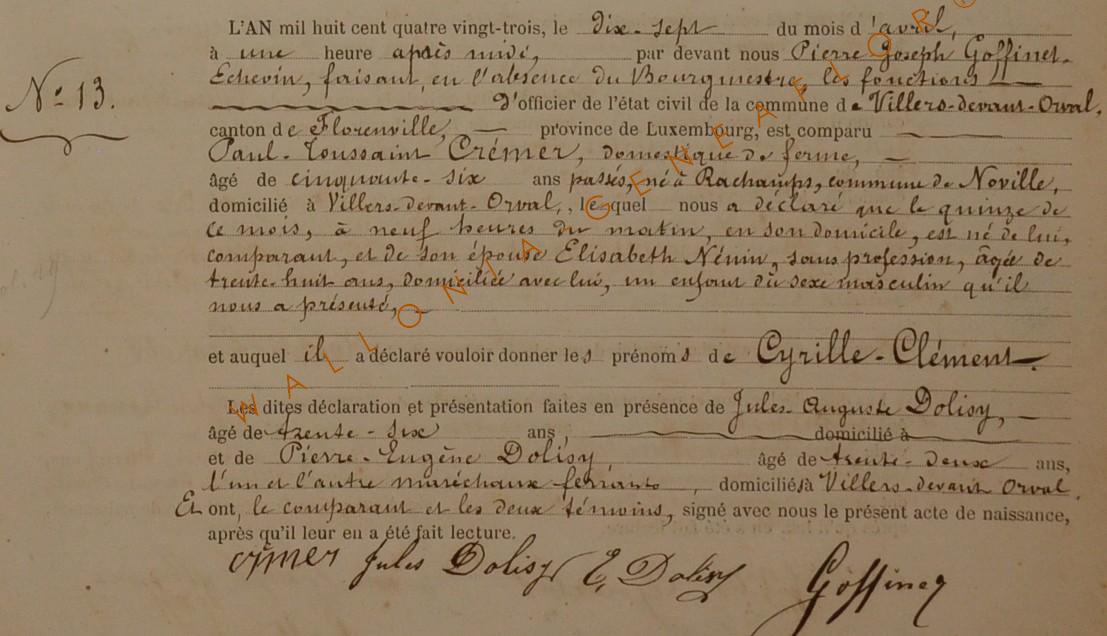 L'AN mil huit cent quatre vingt-trois, le dix-sept du mois d'avril,
à une heure après midi, par devant nous Pierre Joseph Goffinet,
Echevin, faisant, en l'absence du Bourgmestre, les fonctions
N° 13.
d'officier de l'état civil de la commune de Villers-devant-Orval,
canton de Florenville, province de Luxembourg, est comparu
Paul-Toussaint Crémer, domestique de ferme,
âgé de cinquante-six ans passés, né à Rachamps, commune de Noville,
domicilié à Villers-devant-Orval, lequel nous a déclaré que le quinze de
ce mois, à neuf heures du matin, en son domicile, est né de lui,
comparant, et de son épouse Elisabeth Nénin, sans profession, âgée de
trente-huit ans, domiciliée avec lui, un enfant du sexe masculin qu'il
nous a présenté,
et auquel il a déclaré vouloir donner les prénoms de Cyrille-Clément.
Les dites déclaration et présentation faites en présence de Jules-Auguste Dolisy,
âgé de trente-six ans, domicilié à
et de Pierre-Eugène Dolisy âgé de trente-deux ans,
l'un et l'autre maréchaux ferrants, domiciliés à Villers-devant Orval.
Et ont, le comparant et les deux témoins, signé avec nous le présent acte de naissance,
après qu'il leur en a été fait lecture.
crmer Jules Dolisy E. Dolisy Goffinet
WALLONIA GENEAFLOR®